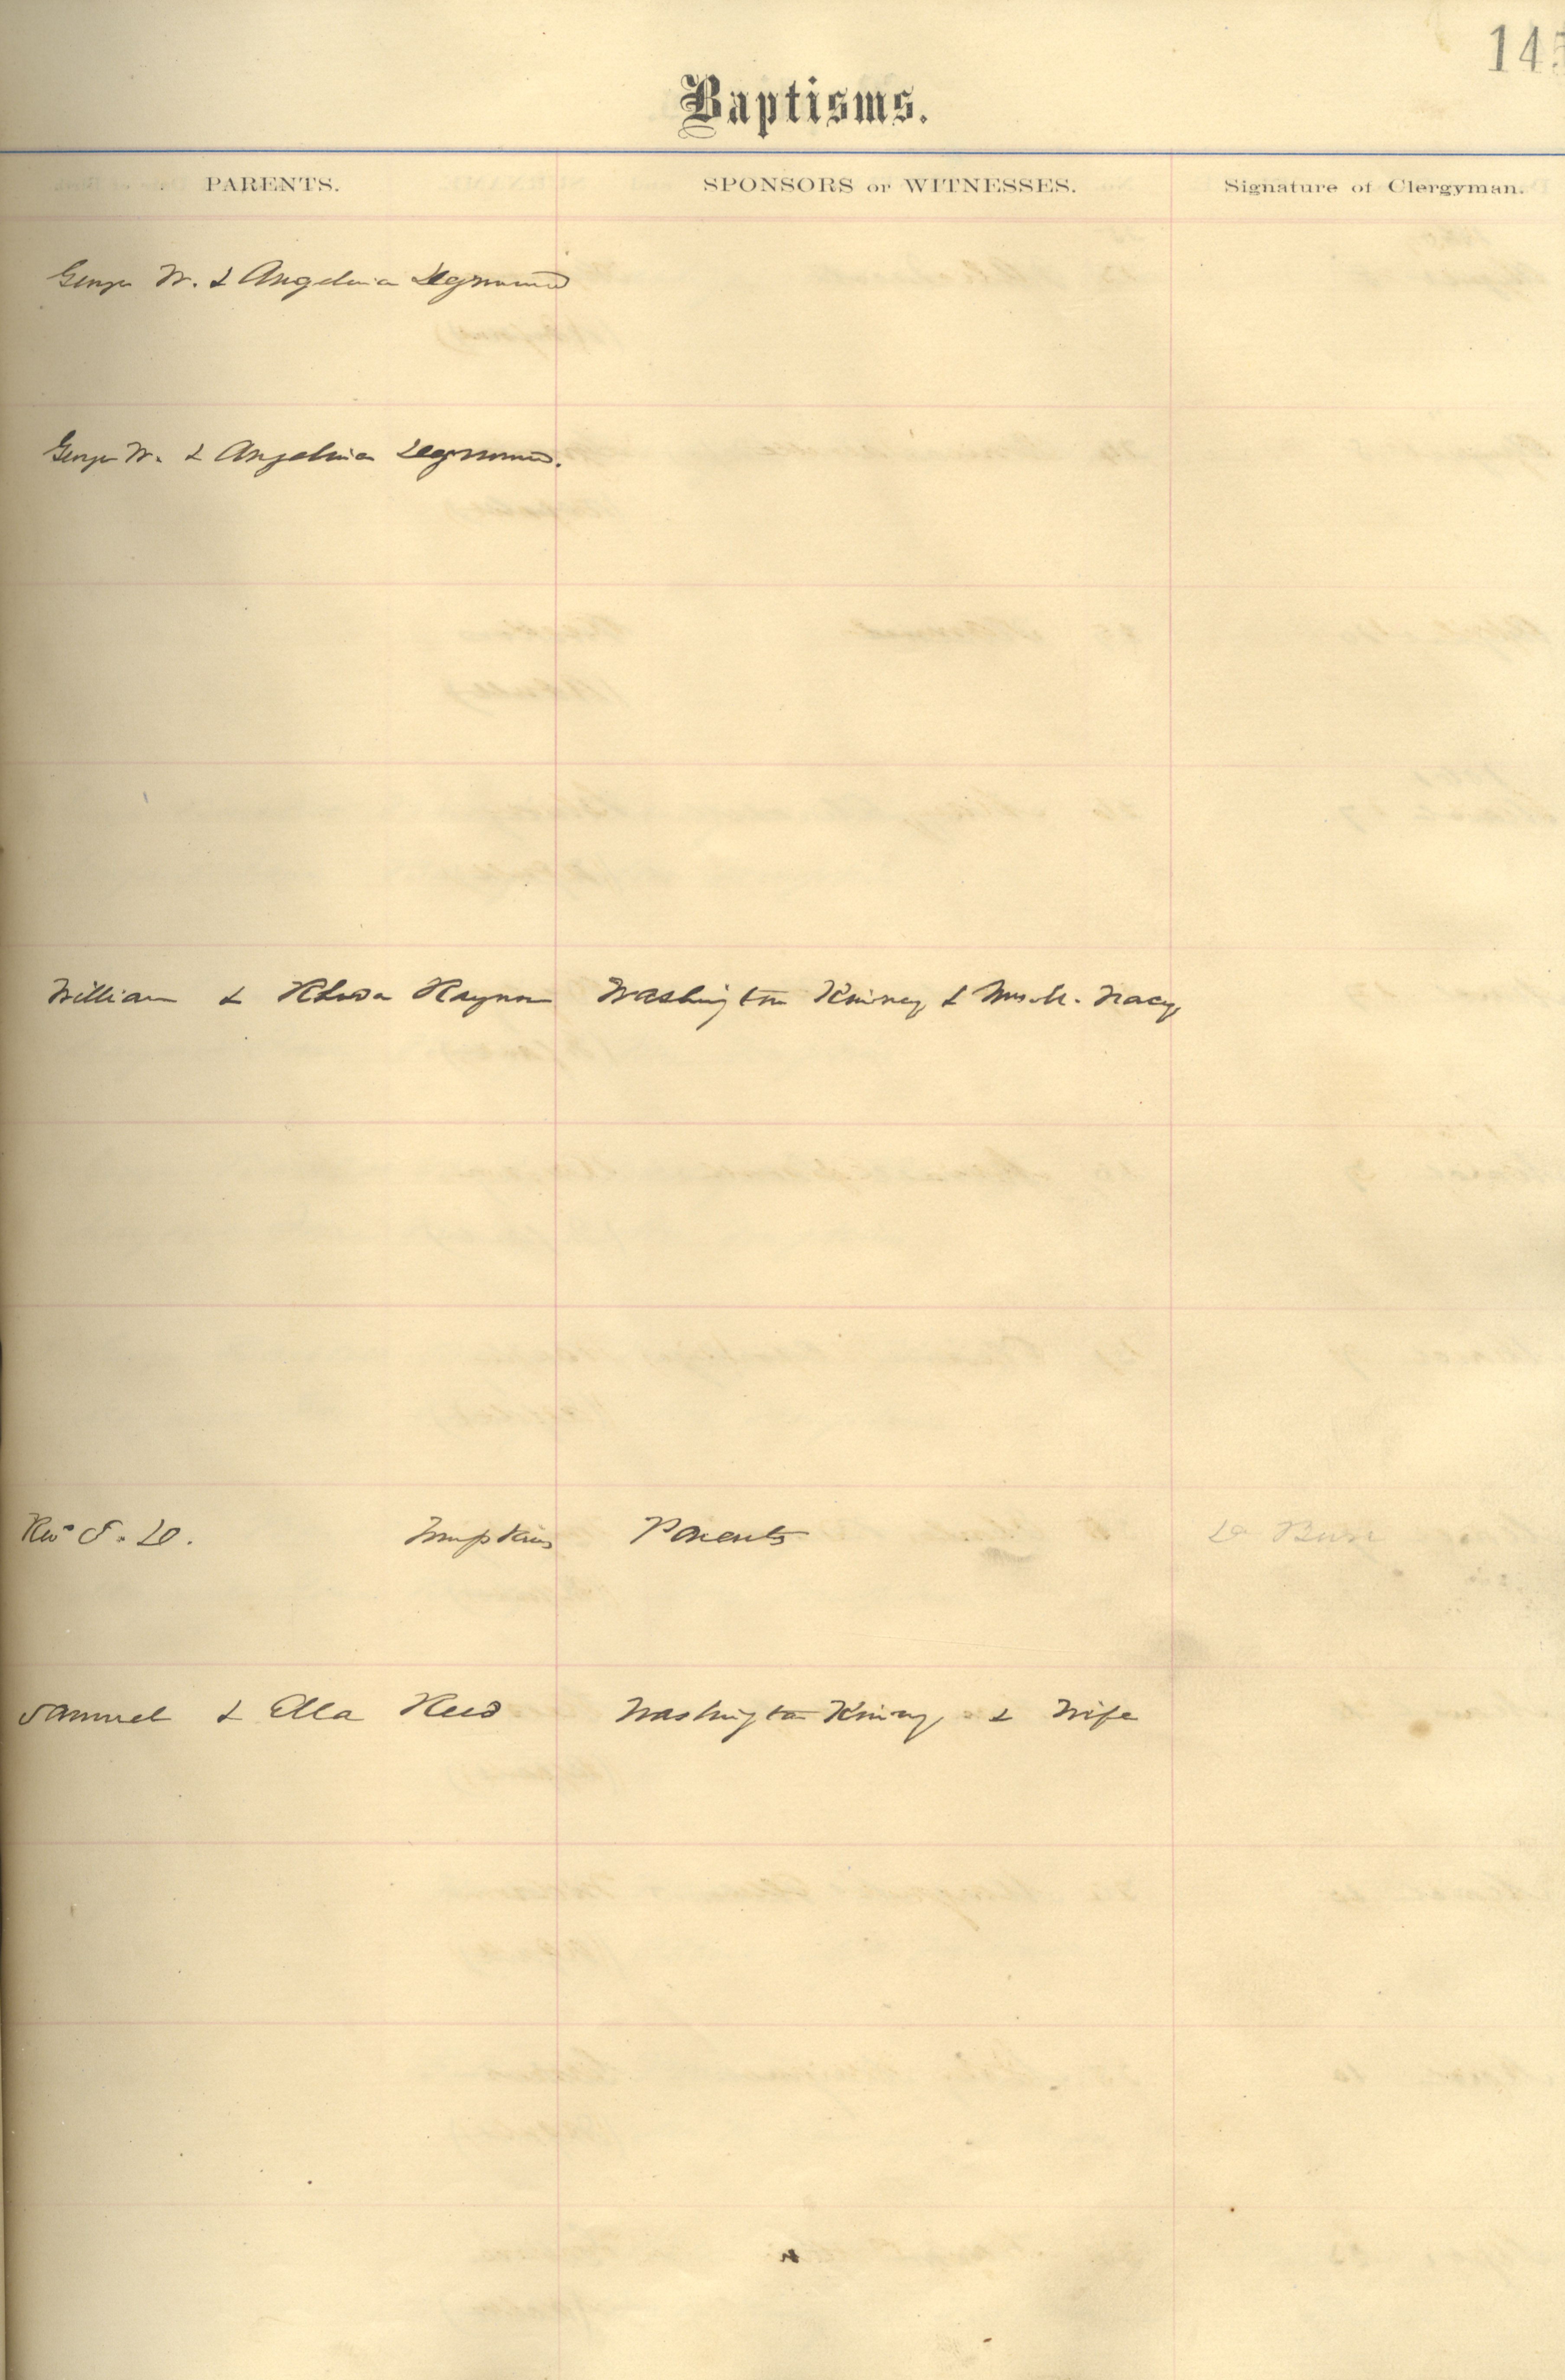 14
Baptisms.
PARENTS. SPONSORS or WITNESSES. Signature of Clergyman.
George W. & Angelina
George W. & Angelina
William & Rhoda Raynor Washington Kinney & Mrs. M. Tracy
Rev. F. D. Tompkins Parents
Samuel & Ella Reed Washington Kinney & Wife